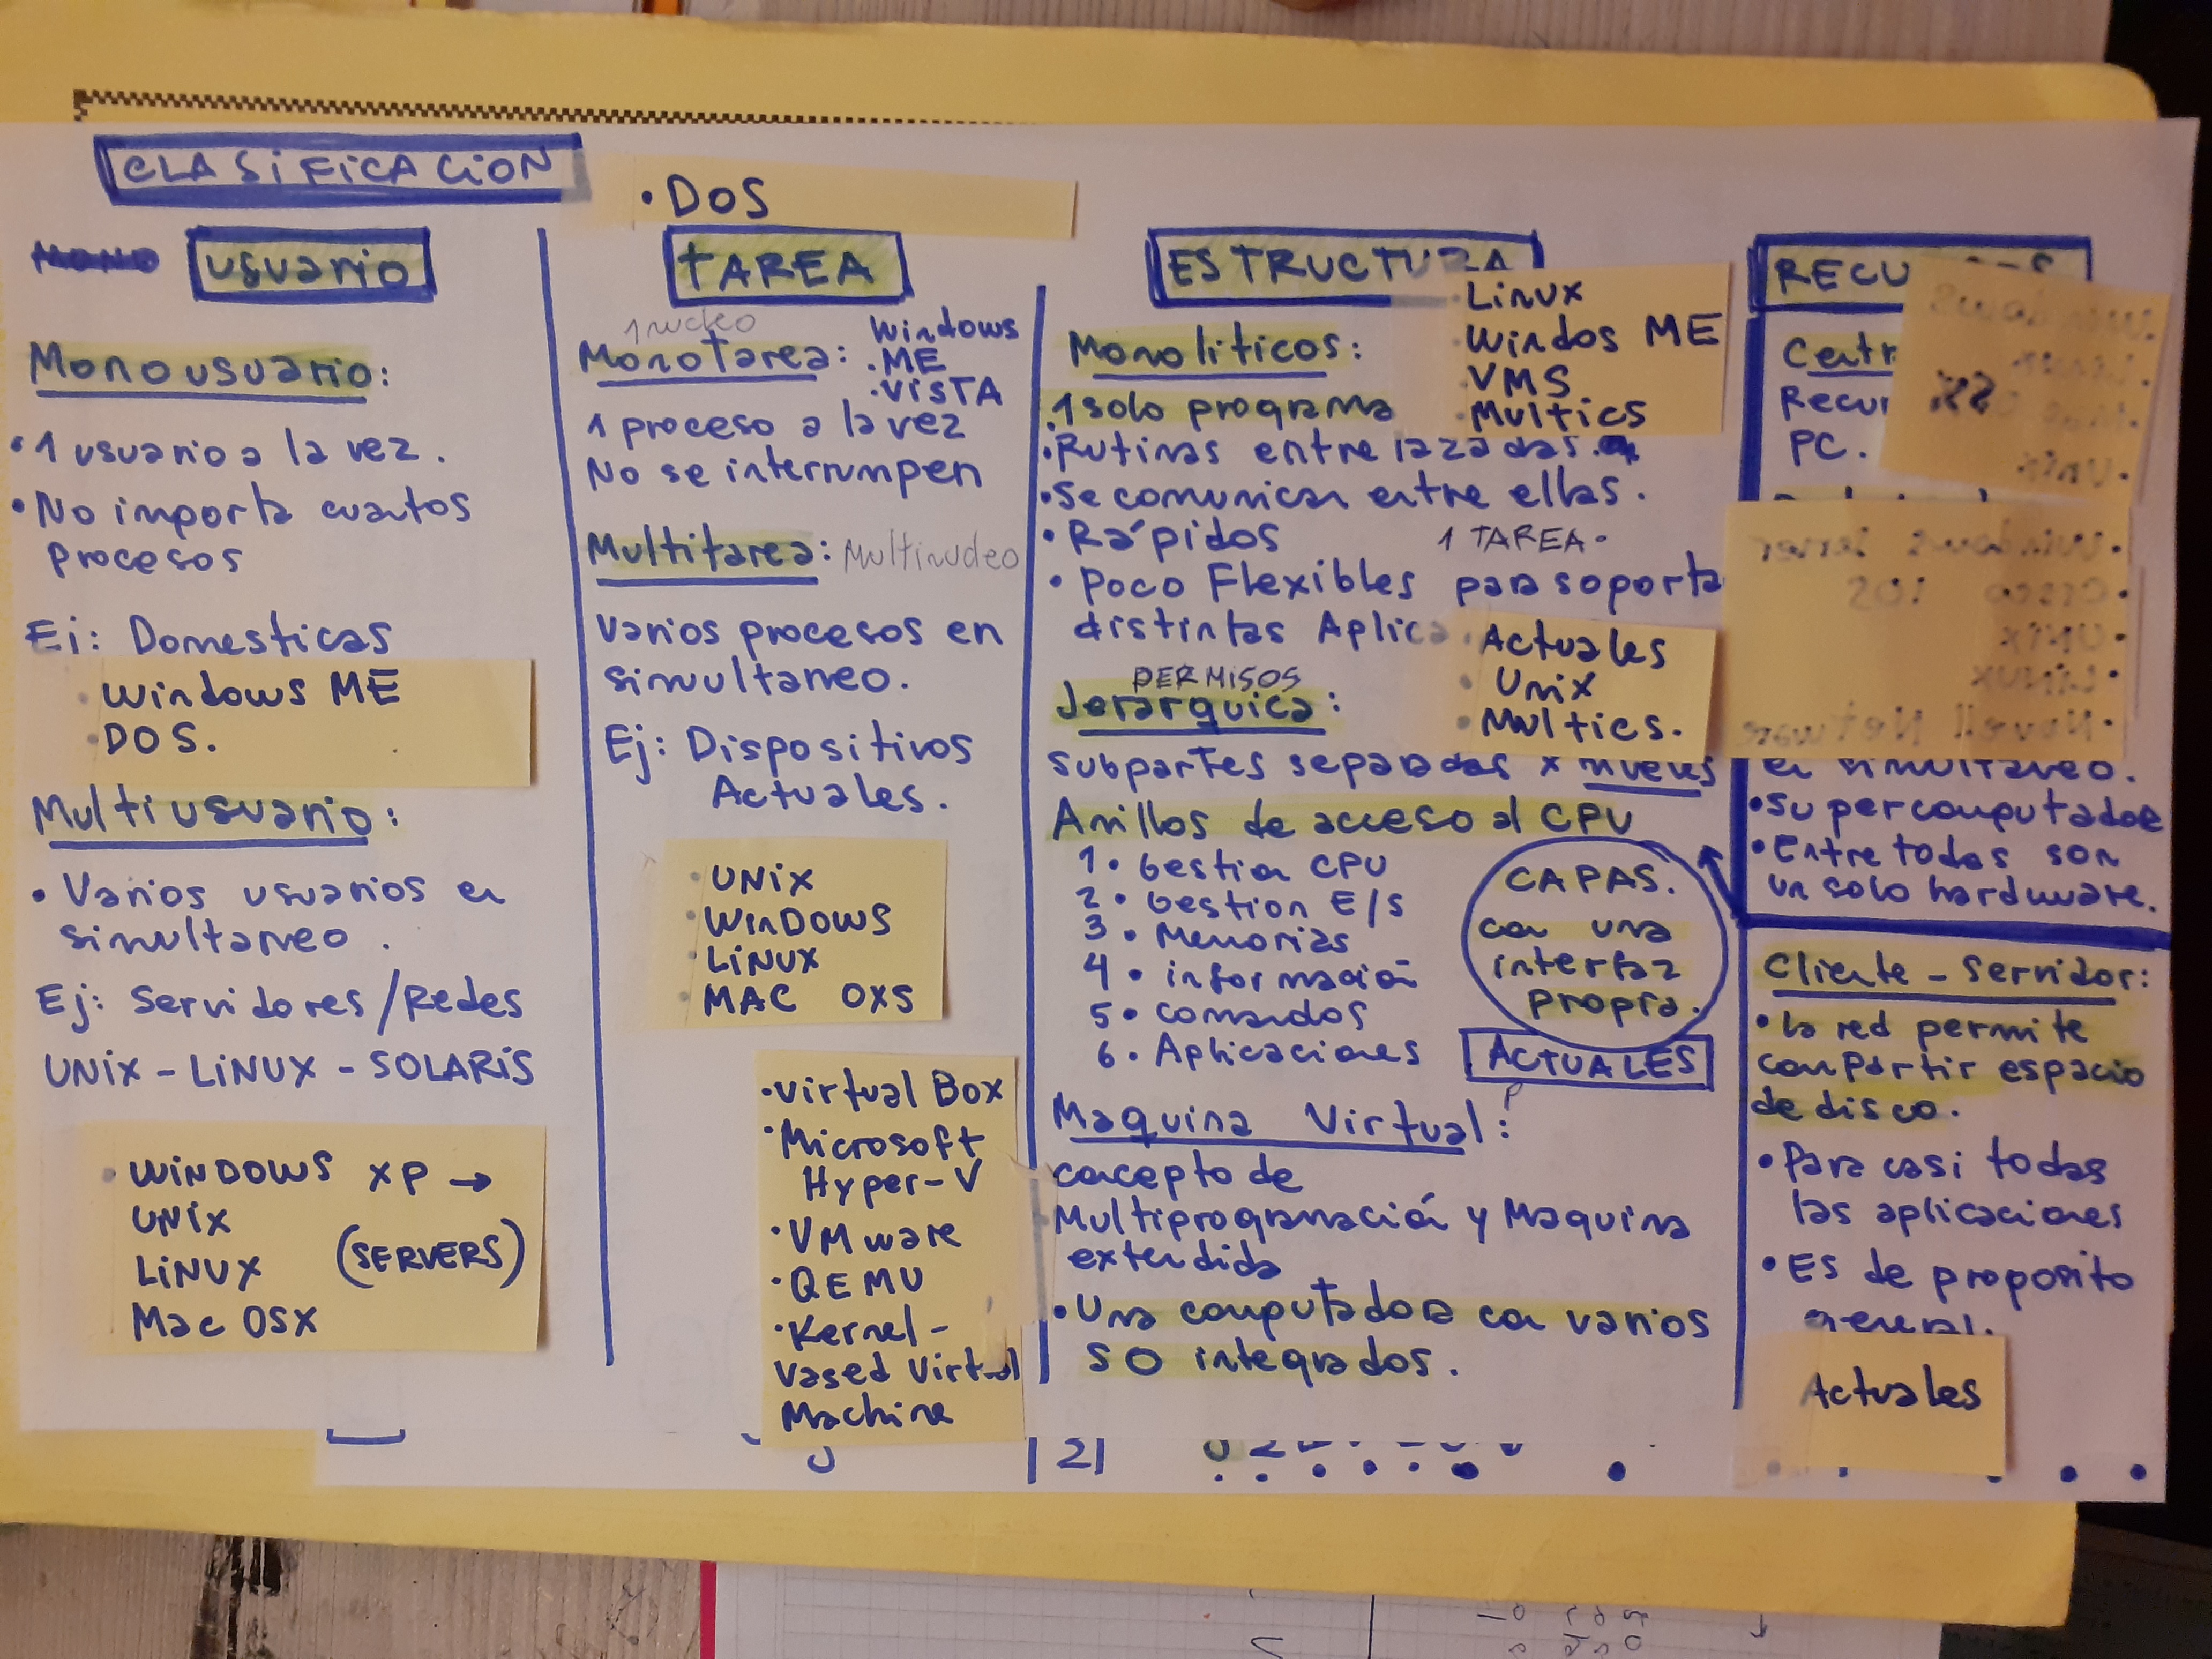 CLASIFICACION
• DOS
usuario
Monousuario:
• 1 usuario a la vez.
• No importa cuantos
procesos
Ej: Domesticas
Windows ME
DOS.
Multiusuario:
• Varios usuarios en
simultaneo.
Ej: Servidores/Redes
UNiX - LiNUX - SOLARiS
WiNDOWS XP →
UNiX
LiNUX (SERVERS)
Mac OSX
tAREA
1 nucleo
Monotarea: Windows
.ME
.VISTA
1 proceso a la vez
No se interrumpen
Multitarea: Multinucleo
Varios procesos en
simultaneo.
Ej: Dispositivos
Actuales.
UNiX
WinDOWS
LiNUX
MAC OXS
• Virtual Box
• Microsoft
Hyper-V
• VMware
• QEMU
• Kernel-
Vased Virtual
Machine
ESTRUCTURA
Linux
Windos ME
VMS
Multics
Monoliticos:
1 solo programa
• Rutinas entrelazadas.
• Se comunican entre ellas.
• Rápidos
1 TAREA.
• Poco Flexibles para soporta
distintas Aplica
Actuales
Unix
Multics.
PERMISOS
Jerarquica:
subpartes separadas x niveles
Anillos de acceso al CPU
1. Gestion CPU
2. Gestion E/S
3. Memorias
4. información
5. comandos
6. Aplicaciones
CAPAS.
con una
interfaz
propia.
ACTUALES
Maquina Virtual:
concepto de
Multiprogramación y Maquina
extendida
• Una computadora con varios
SO integrados.
RECU
Centr
Recur
PC.
en simultaneo.
• Supercomputador
• Entre todas son
un solo hardware.
Cliente-Servidor:
• la red permite
compartir espacio
de disco.
• Para casi todas
las aplicaciones
• Es de proposito
general.
Actuales
Windows Server
Cisco iOS
UNiX
LiNUX
Novell Netware
|2|